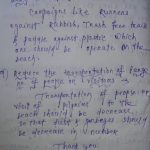 Campaigns like Runners
against Rubbish, Trash free trails
& Paddle against plastic which
are should be operate on the
beach.
Reduce the transportation of
Transportation of people or
visit of to the
beach should be decrease.
So that dirt & garbages should
be decrease
Thank you